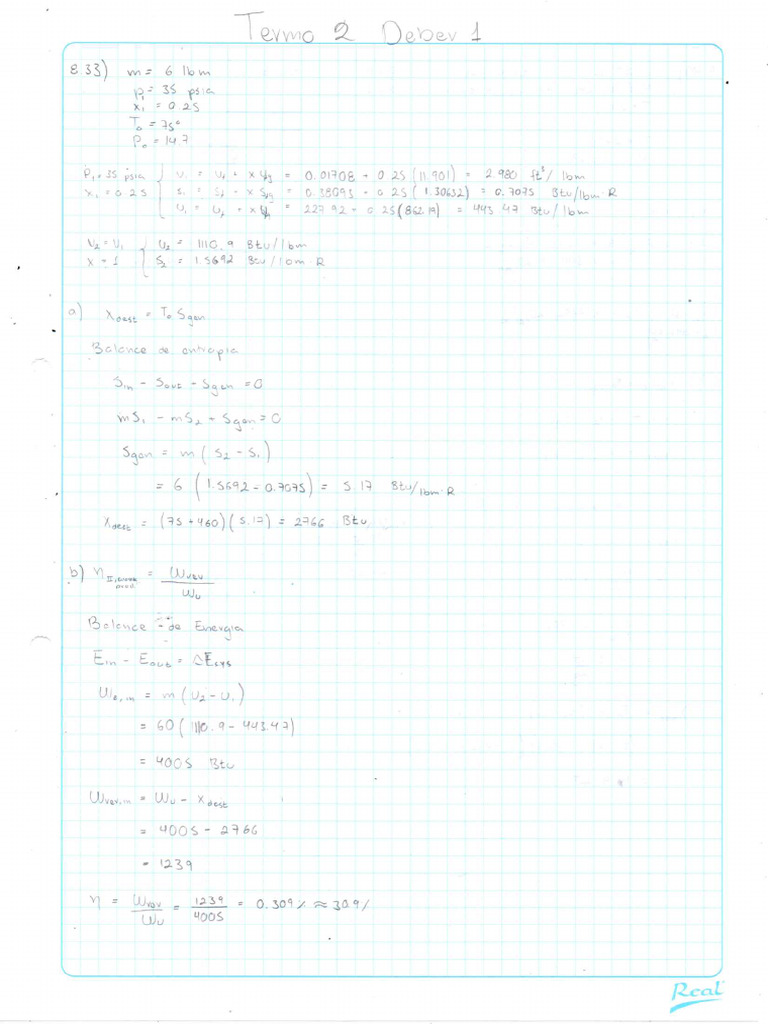 Termo 2 Deber 1
8.33) m = 6 lbm
P₁ = 35 psia
x₁ = 0.25
T₀ = 75°
P₀ = 14.7
P₁ = 35 psia { v₁ = vf + x vfg = 0.01708 + 0.25 (11.901) = 2.980 ft³/lbm
x₁ = 0.25 s₁ = sf + x sfg = 0.38093 + 0.25 (1.30632) = 0.7075 Btu/lbm·R
u₁ = uf + x ufg = 227.92 + 0.25 (862.19) = 443.47 Btu/lbm
v₂ = v₁ { u₂ = 1110.9 Btu/lbm
x = 1 s₂ = 1.5692 Btu/lbm·R
a) xdest = T₀ Sgen
Balance de entropia
Sin - Sout - Sgen = 0
mS₁ - mS₂ + Sgen = 0
Sgen = m (S₂ - S₁)
= 6 (1.5692 - 0.7075) = 5.17 Btu/lbm·R
xdest = (75 + 460)(5.17) = 2766 Btu
b) η II, prod. = Wrev / Wu
Balance de Energia
Ein - Eout = ΔEsys
We,in = m (U₂ - U₁)
= 60 (1110.9 - 443.47)
= 4005 Btu
Wrev,in = Wu - xdest
= 4005 - 2766
= 1239
η = Wrev / Wu = 1239 / 4005 = 0.309% ≈ 30.9%
Real